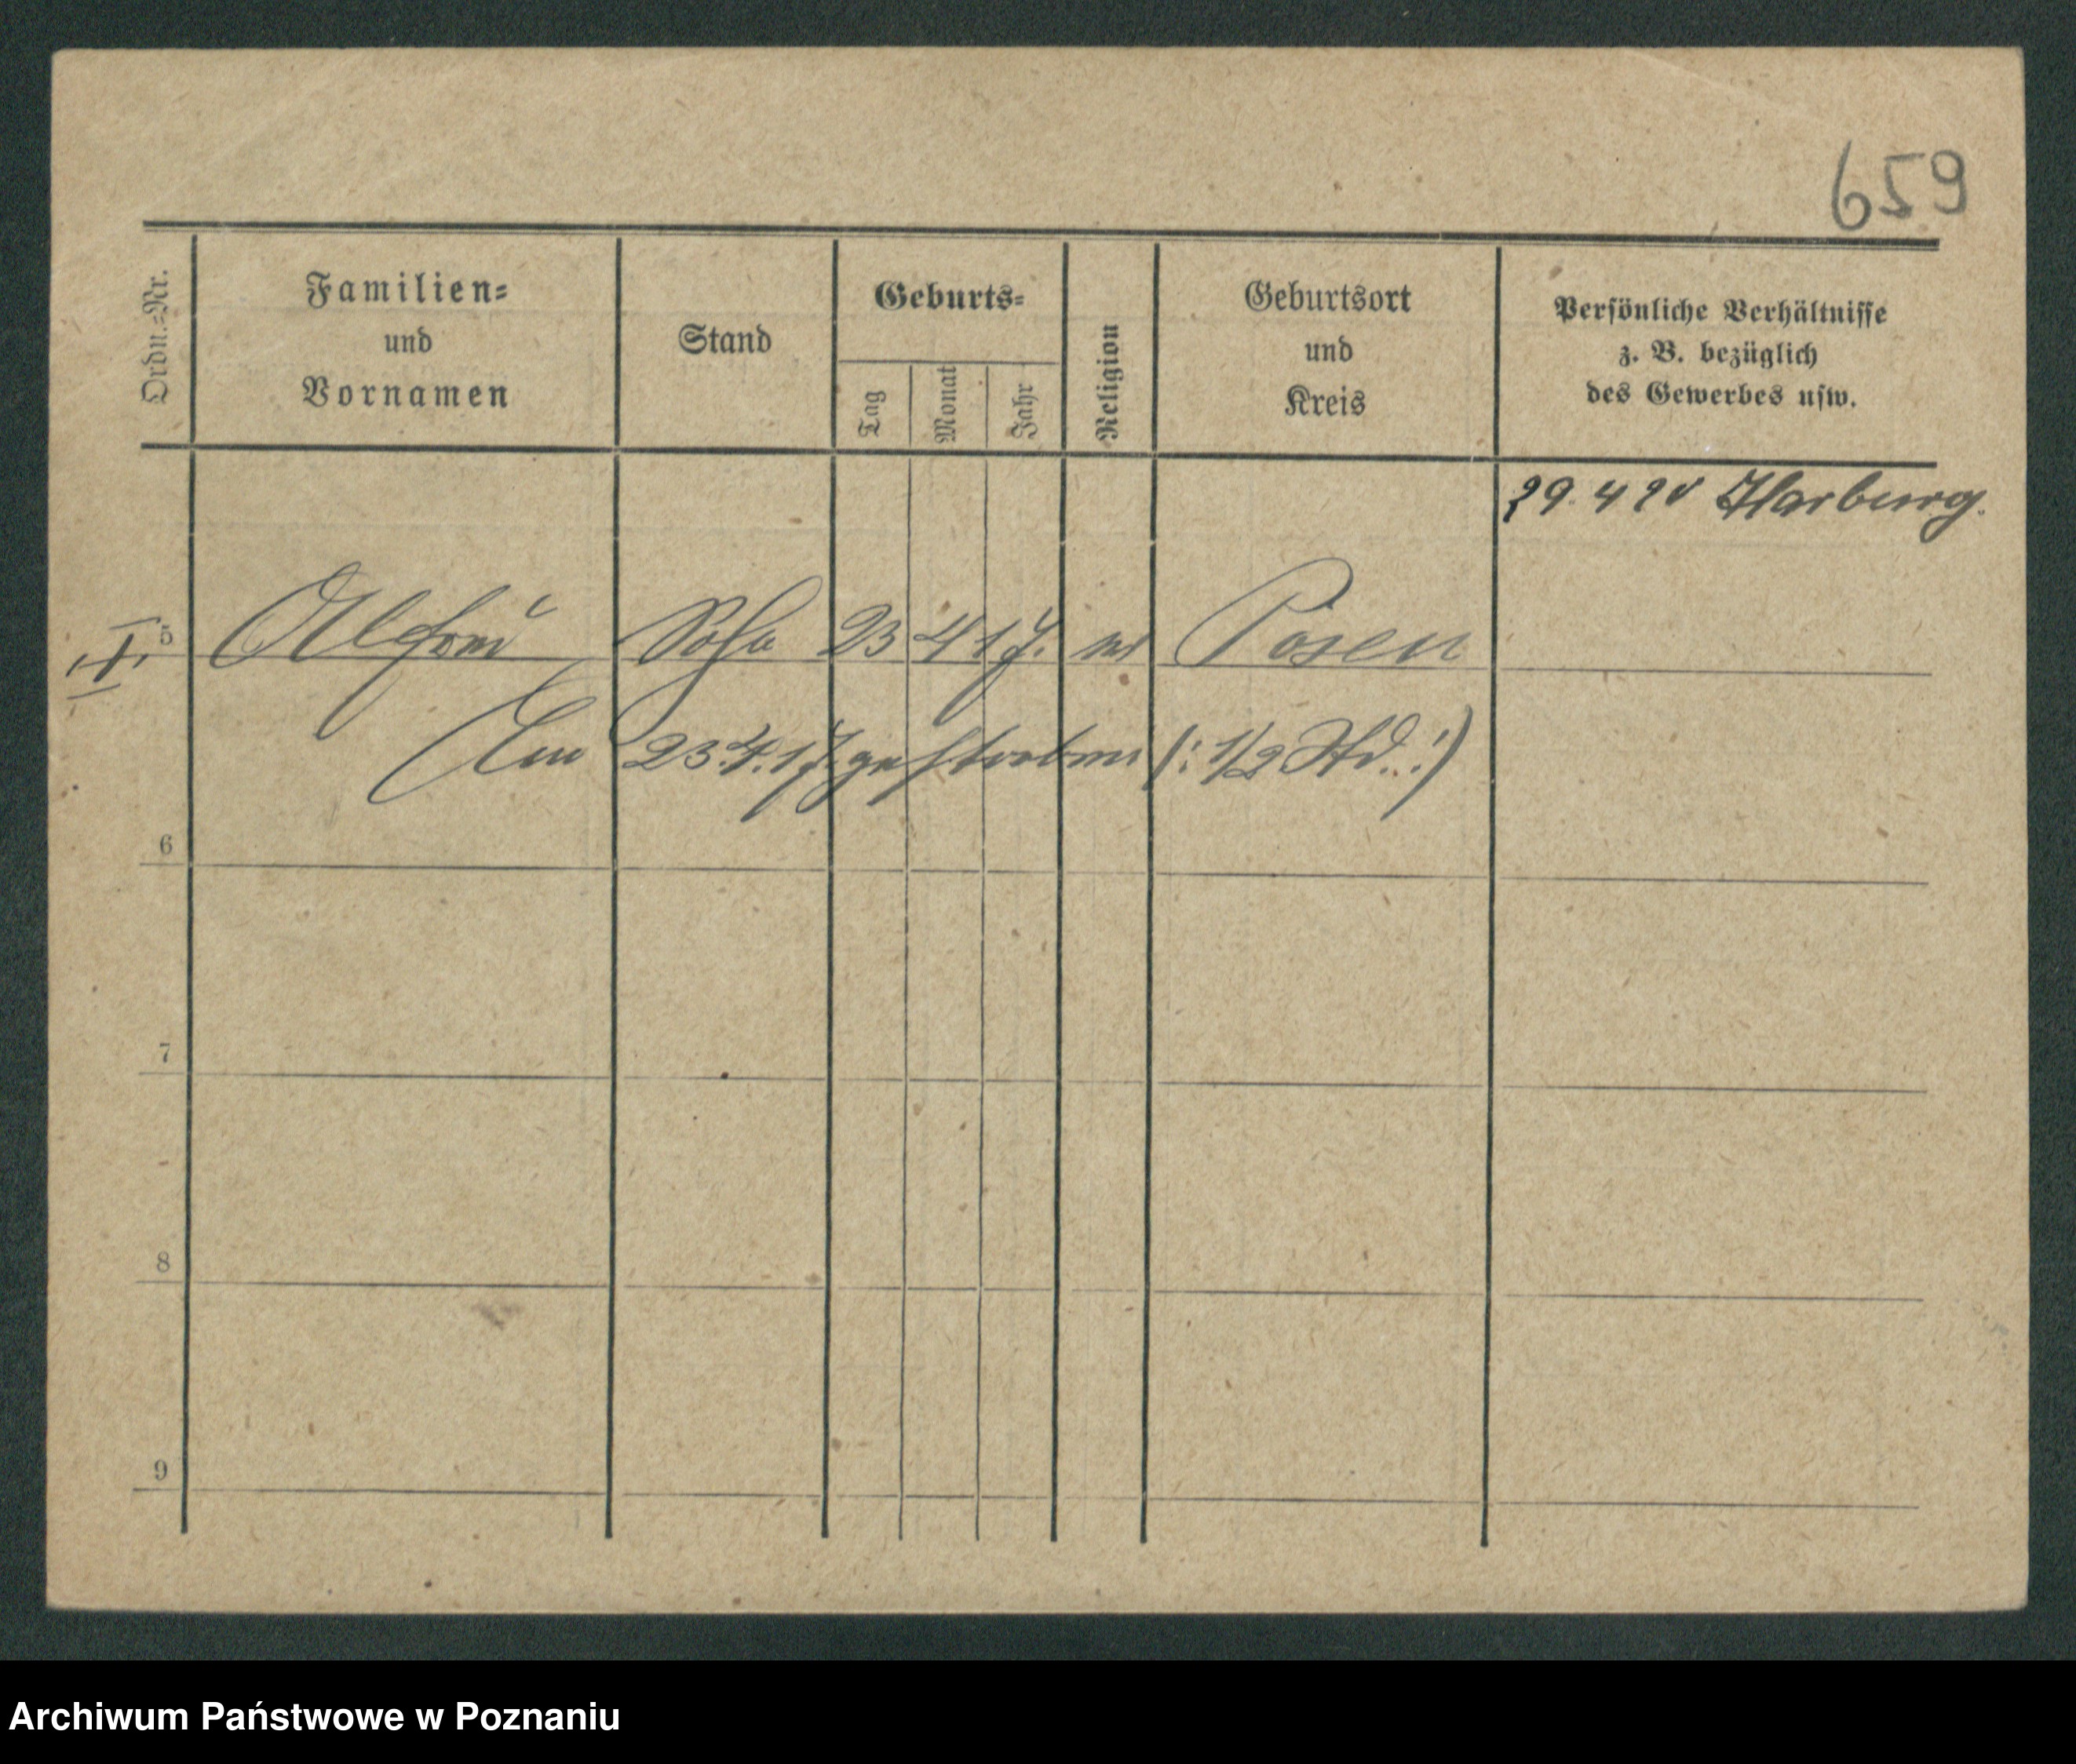 659
Ordn.-Nr.
Familien-
und
Vornamen
Stand
Geburts-
Tag
Monat
Jahr
Religion
Geburtsort
und
Kreis
Persönliche Verhältnisse
z. B. bezüglich
des Gewerbes usw.
29. 4 20 Harburg.
5 Alfred Sohn 23 4 17. ev Posen
Am 23.4.17. gestorben (: 1/2 Std. :)
6
7
8
9
Archiwum Państwowe w Poznaniu